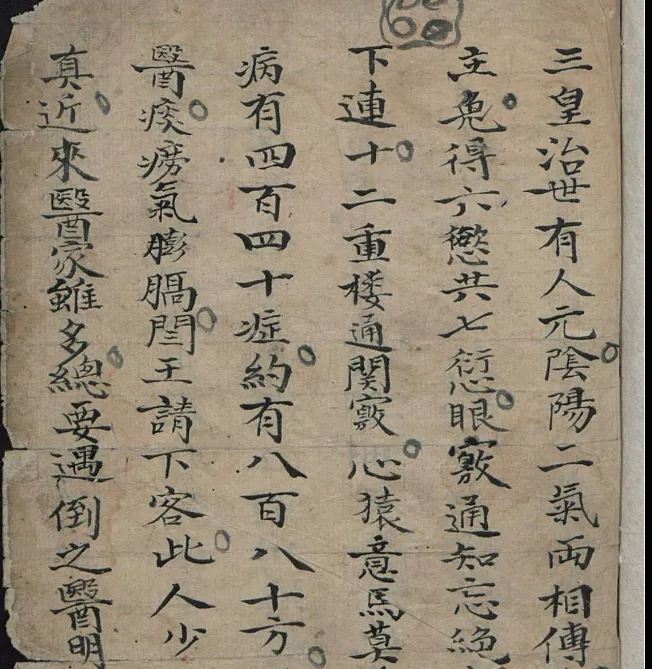 三皇治世有人元陰陽二氣両相傳
主免得六慾共七衍心眼竅通知忘絶
下連十二重楼通関竅心猿意馬莫
病有四百四十症約有八百八十方
醫痰痨氣膨膈閆王請下客此人少
真近來醫家雖多總要遇倒之醫明